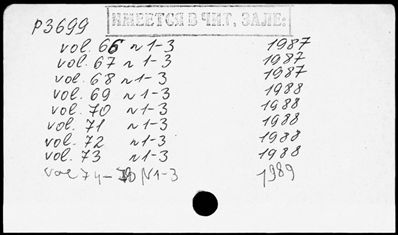 P3699
ИМЕЕТСЯ В ЧИТ. ЗАЛЕ.
vol. 66 N 1-3 1987
vol. 67 N 1-3 1987
vol. 68 N 1-3 1987
vol. 69 N 1-3 1988
vol. 70 N 1-3 1988
vol. 71 N 1-3 1988
vol. 72 N 1-3 1988
vol. 73 N 1-3 1988
vol 74- N1-3 1989